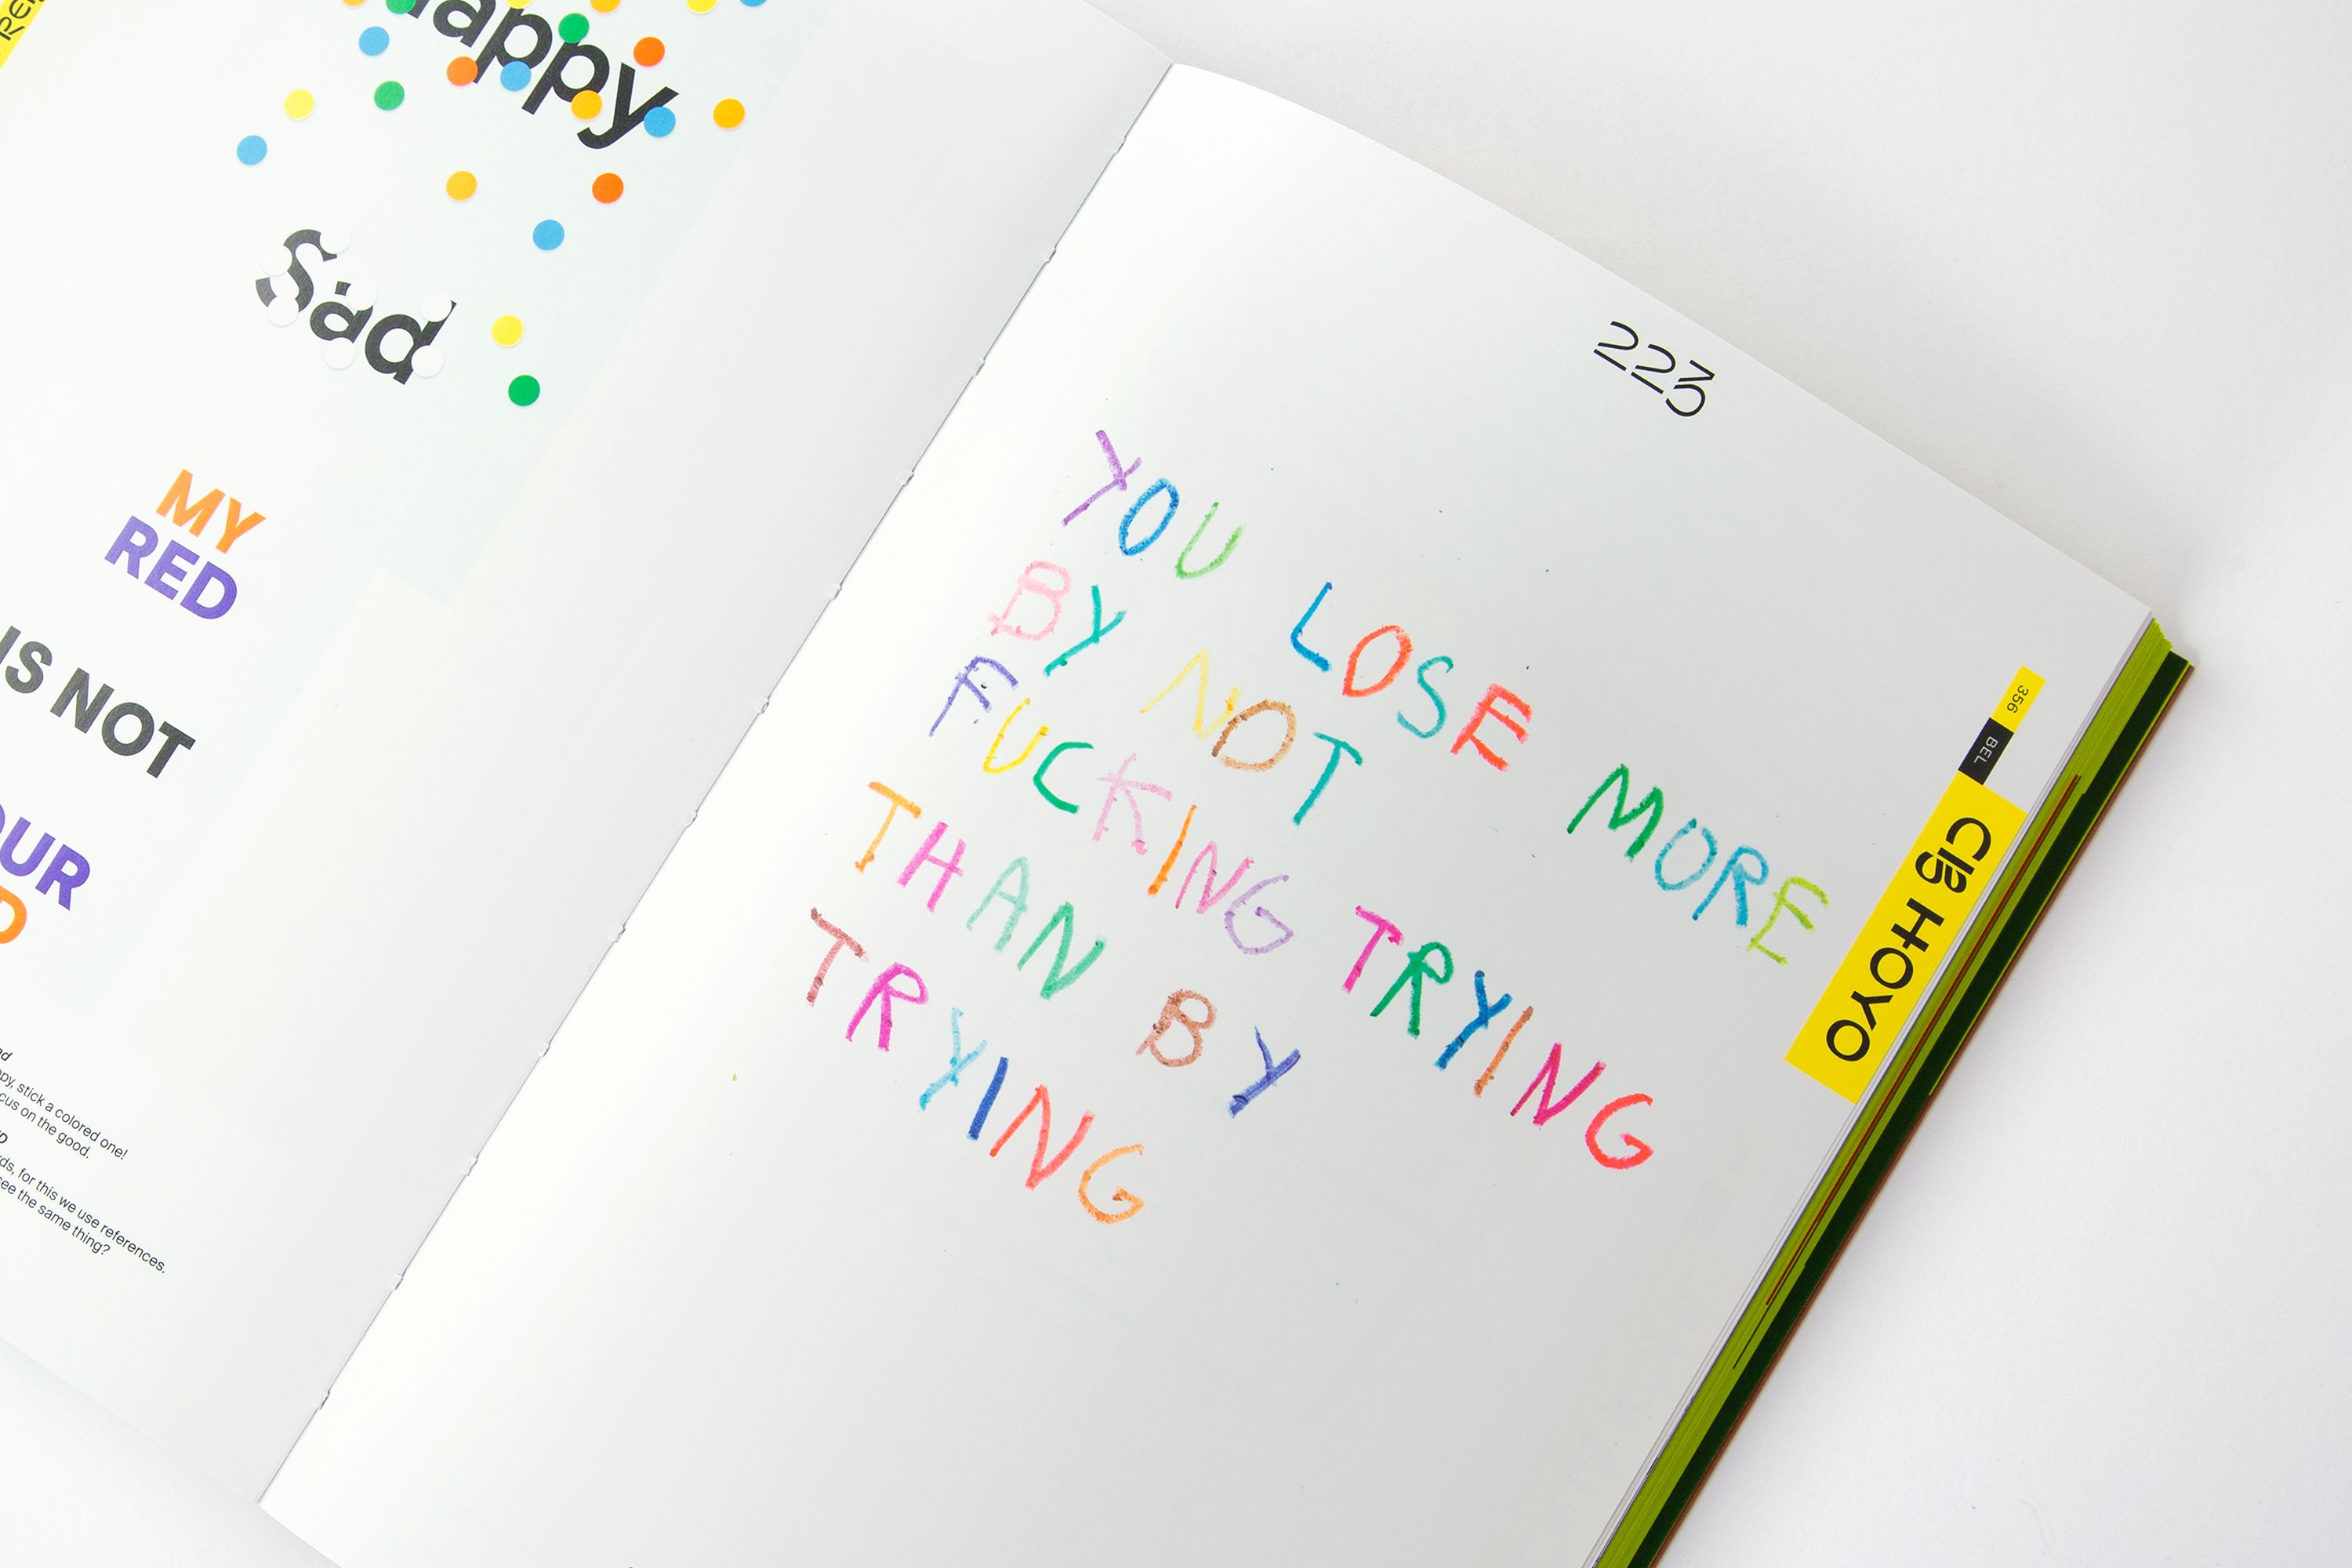 Happy
Sad
MY
RED
IS NOT
OUR
py, stick a colored one!
cus on the good.
rds, for this we use references.
see the same thing?
223
YOU LOSE MORE
BY NOT
FUCKING TRYING
THAN BY
TRYING
356
BEL
Clg HOYO